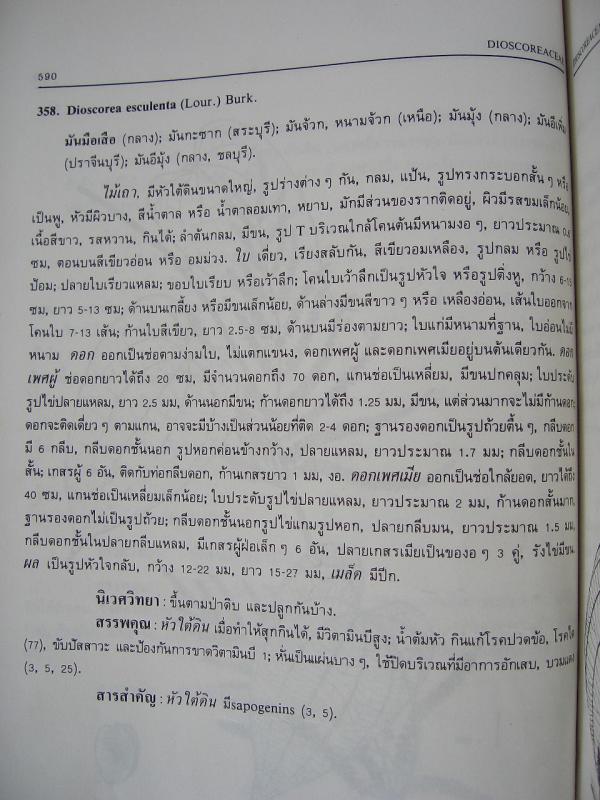 DIOSCOREACEAE
590
358. Dioscorea esculenta (Lour.) Burk.
มันมือเสือ (กลาง); มันกะซาก (สระบุรี); มันจ้วก, หนามจ้วก (เหนือ); มันมุ้ง (กลาง); มันอีเพิ่ม
(ปราจีนบุรี); มันอีมุ้ง (กลาง, ชลบุรี).
ไม้เถา, มีหัวใต้ดินขนาดใหญ่, รูปร่างต่าง ๆ กัน, กลม, แป้น, รูปทรงกระบอกสั้น ๆ หรือ
เป็นพู, หัวมีผิวบาง, สีน้ำตาล หรือ น้ำตาลอมเทา, หยาบ, มักมีส่วนของรากติดอยู่, ผิวมีรสขมเล็กน้อย,
เนื้อสีขาว, รสหวาน, กินได้; ลำต้นกลม, มีขน, รูป T บริเวณใกล้โคนต้นมีหนามงอ ๆ, ยาวประมาณ
ซม, ตอนบนสีเขียวอ่อน หรือ อมม่วง. ใบ เดี่ยว, เรียงสลับกัน, สีเขียวอมเหลือง, รูปกลม หรือ รูปไข่
ป้อม; ปลายใบเรียวแหลม; ขอบใบเรียบ หรือเว้าลึก; โคนใบเว้าลึกเป็นรูปหัวใจ หรือรูปติ่งหู, กว้าง
ซม, ยาว 5-13 ซม; ด้านบนเกลี้ยง หรือมีขนเล็กน้อย, ด้านล่างมีขนสีขาว ๆ หรือ เหลืองอ่อน, เส้นใบออกจาก
โคนใบ 7-13 เส้น; ก้านใบสีเขียว, ยาว 2.5-8 ซม, ด้านบนมีร่องตามยาว; ใบแก่มีหนามที่ฐาน, ใบอ่อนไม่มี
หนาม ดอก ออกเป็นช่อตามง่ามใบ, ไม่แตกแขนง, ดอกเพศผู้ และดอกเพศเมียอยู่บนต้นเดียวกัน. ดอก
เพศผู้ ช่อดอกยาวได้ถึง 20 ซม, มีจำนวนดอกถึง 70 ดอก, แกนช่อเป็นเหลี่ยม, มีขนปกคลุม; ใบประดับ
รูปไข่ปลายแหลม, ยาว 2.5 มม, ด้านนอกมีขน; ก้านดอกยาวได้ถึง 1.25 มม, มีขน, แต่ส่วนมากจะไม่มีก้านดอก;
ดอกจะติดเดี่ยว ๆ ตามแกน, อาจจะมีบ้างเป็นส่วนน้อยที่ติด 2-4 ดอก; ฐานรองดอกเป็นรูปถ้วยตื้น ๆ, กลีบดอก
มี 6 กลีบ, กลีบดอกชั้นนอก รูปหอกค่อนข้างกว้าง, ปลายแหลม, ยาวประมาณ 1.7 มม; กลีบดอกชั้นใน
สั้น; เกสรผู้ 6 อัน, ติดกับท่อกลีบดอก, ก้านเกสรยาว 1 มม, งอ. ดอกเพศเมีย ออกเป็นช่อใกล้ยอด, ยาวได้ถึง
40 ซม, แกนช่อเป็นเหลี่ยมเล็กน้อย; ใบประดับรูปไข่ปลายแหลม, ยาวประมาณ 2 มม, ก้านดอกสั้นมาก,
ฐานรองดอกไม่เป็นรูปถ้วย; กลีบดอกชั้นนอกรูปไข่แกมรูปหอก, ปลายกลีบมน, ยาวประมาณ 1.5 มม,
กลีบดอกชั้นในปลายกลีบแหลม, มีเกสรผู้ฝ่อเล็ก ๆ 6 อัน, ปลายเกสรเมียเป็นของอ ๆ 3 คู่, รังไข่มีขน
ผล เป็นรูปหัวใจกลับ, กว้าง 12-22 มม, ยาว 15-27 มม, เมล็ด มีปีก.
นิเวศวิทยา : ขึ้นตามป่าดิบ และปลูกกันบ้าง.
สรรพคุณ : หัวใต้ดิน เมื่อทำให้สุกกินได้, มีวิตามินบีสูง; น้ำต้มหัว กินแก้โรคปวดข้อ, โรคไต
(77), ขับปัสสาวะ และป้องกันการขาดวิตามินบี 1; หั่นเป็นแผ่นบาง ๆ, ใช้ปิดบริเวณที่มีอาการอักเสบ, บวมแดง
(3, 5, 25).
สารสำคัญ : หัวใต้ดิน มีsapogenins (3, 5).